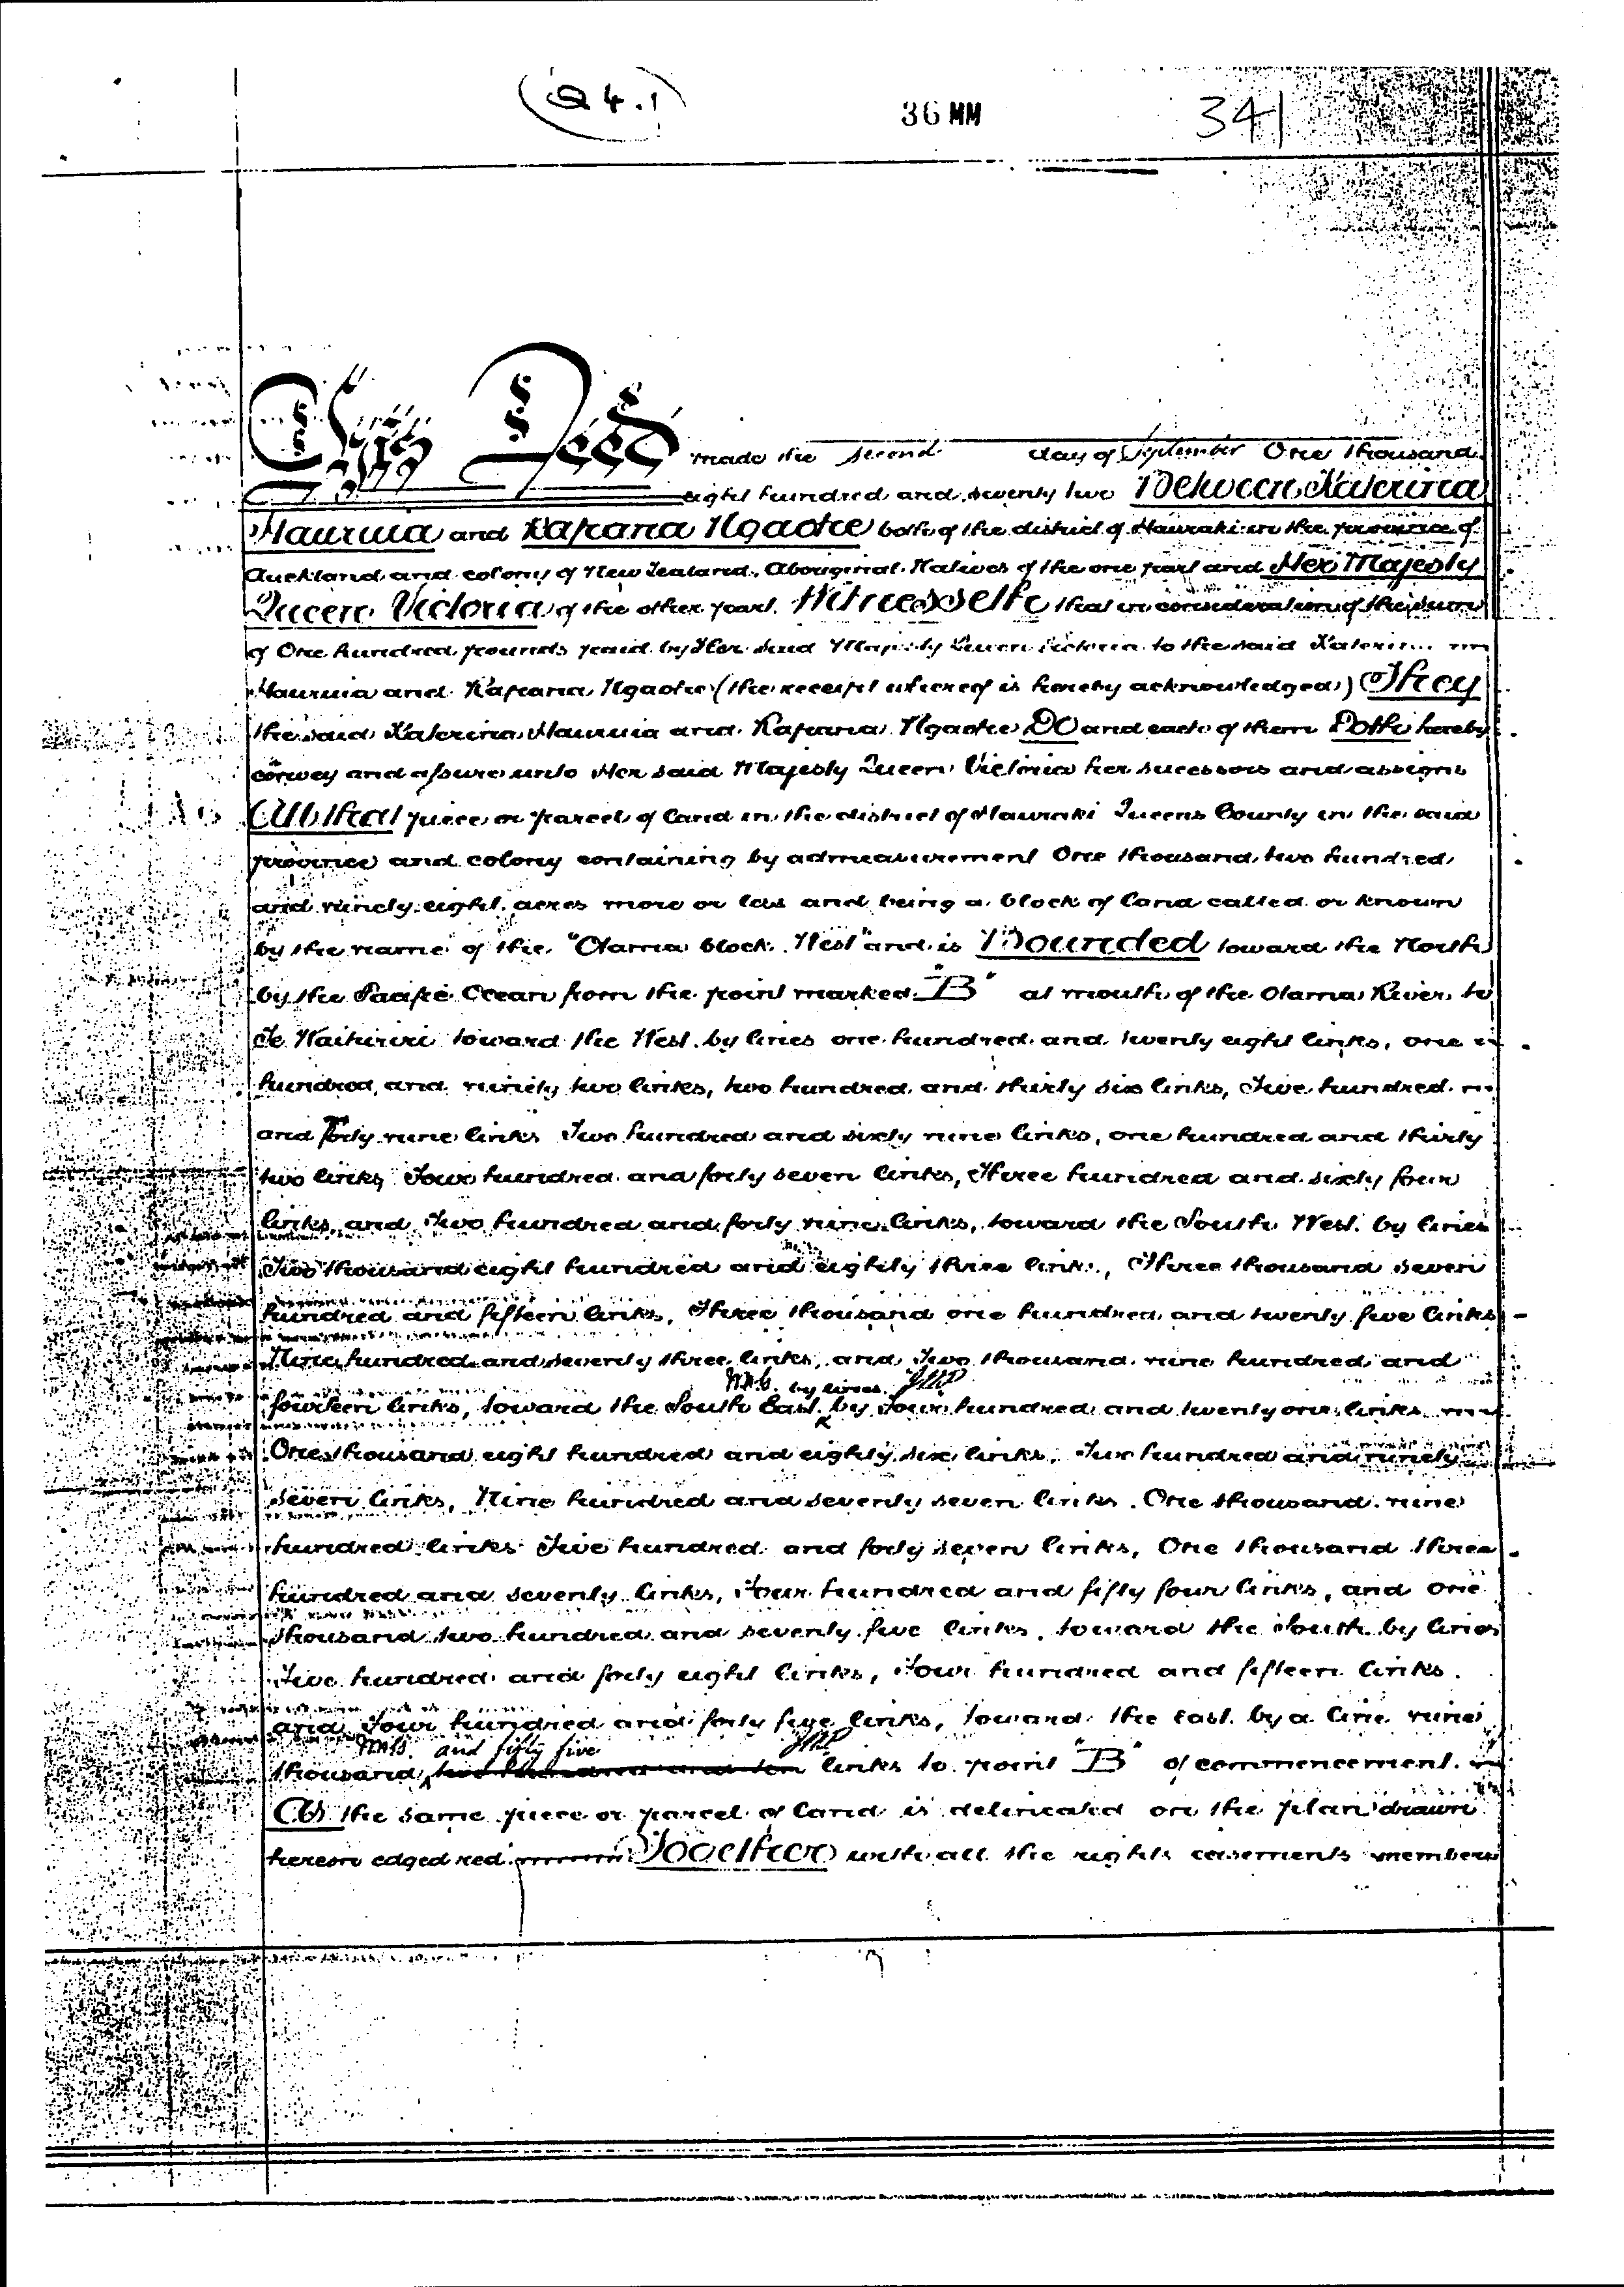 (Q 4.1)
36 MM
341
This Deed made the second day of September One thousand
eight hundred and seventy two Between Katerina
Hauruia and Rapana Ngaohe both of the district of Hauraki in the province of
Auckland and colony of New Zealand, Aboriginal Natives of the one part and Her Majesty
Queen Victoria of the other part. Witnesseth that in consideration of the sum
of One hundred pounds paid by Her said Majesty Queen Victoria to the said Katerina
Hauruia and Rapana Ngaohe (the receipt whereof is hereby acknowledged) They
the said Katerina Hauruia and Rapana Ngaohe Do and each of them Doth hereby
convey and assure unto Her said Majesty Queen Victoria her sucessors and assigns
All that piece or parcel of land in the district of Hauraki Queens County in the said
province and colony containing by admeasurement One thousand two hundred
and ninety eight acres more or less and being a block of land called or known
by the name of the "Otama block West" and is Bounded toward the North
by the Pacific Ocean from the point marked "B" at mouth of the Otama River to
Te Waitiriri toward the West by lines one hundred and twenty eight links, one
hundred and ninety two links, two hundred and thirty six links, Five hundred
and forty nine links Two hundred and sixty nine links, one hundred and thirty
two links, Four hundred and forty seven links, Three hundred and sixty four
links, and Two hundred and forty nine links, toward the South West by lines
Two thousand eight hundred and eighty three links, Three thousand seven
hundred and fifteen links, Three thousand one hundred and twenty five links
Nine hundred and seventy three links, and Two thousand nine hundred and
by lines
fourteen links, toward the South East by Four hundred and twenty one links
One thousand eight hundred and eighty six links, Two hundred and ninety
seven links, Nine hundred and seventy seven links. One thousand nine
hundred links Five hundred and forty seven links, One thousand three
hundred and seventy links, Four hundred and fifty four links, and one
thousand two hundred and seventy five links, toward the South by lines
Five hundred and forty eight links, Four hundred and fifteen links.
and Four hundred and forty five links, toward the East by a line nine
and fifty five
thousand two hundred and ten links to point "B" of commencement.
As the same piece or parcel of land is delineated on the plan drawn
hereon edged red Together with all the rights easements members